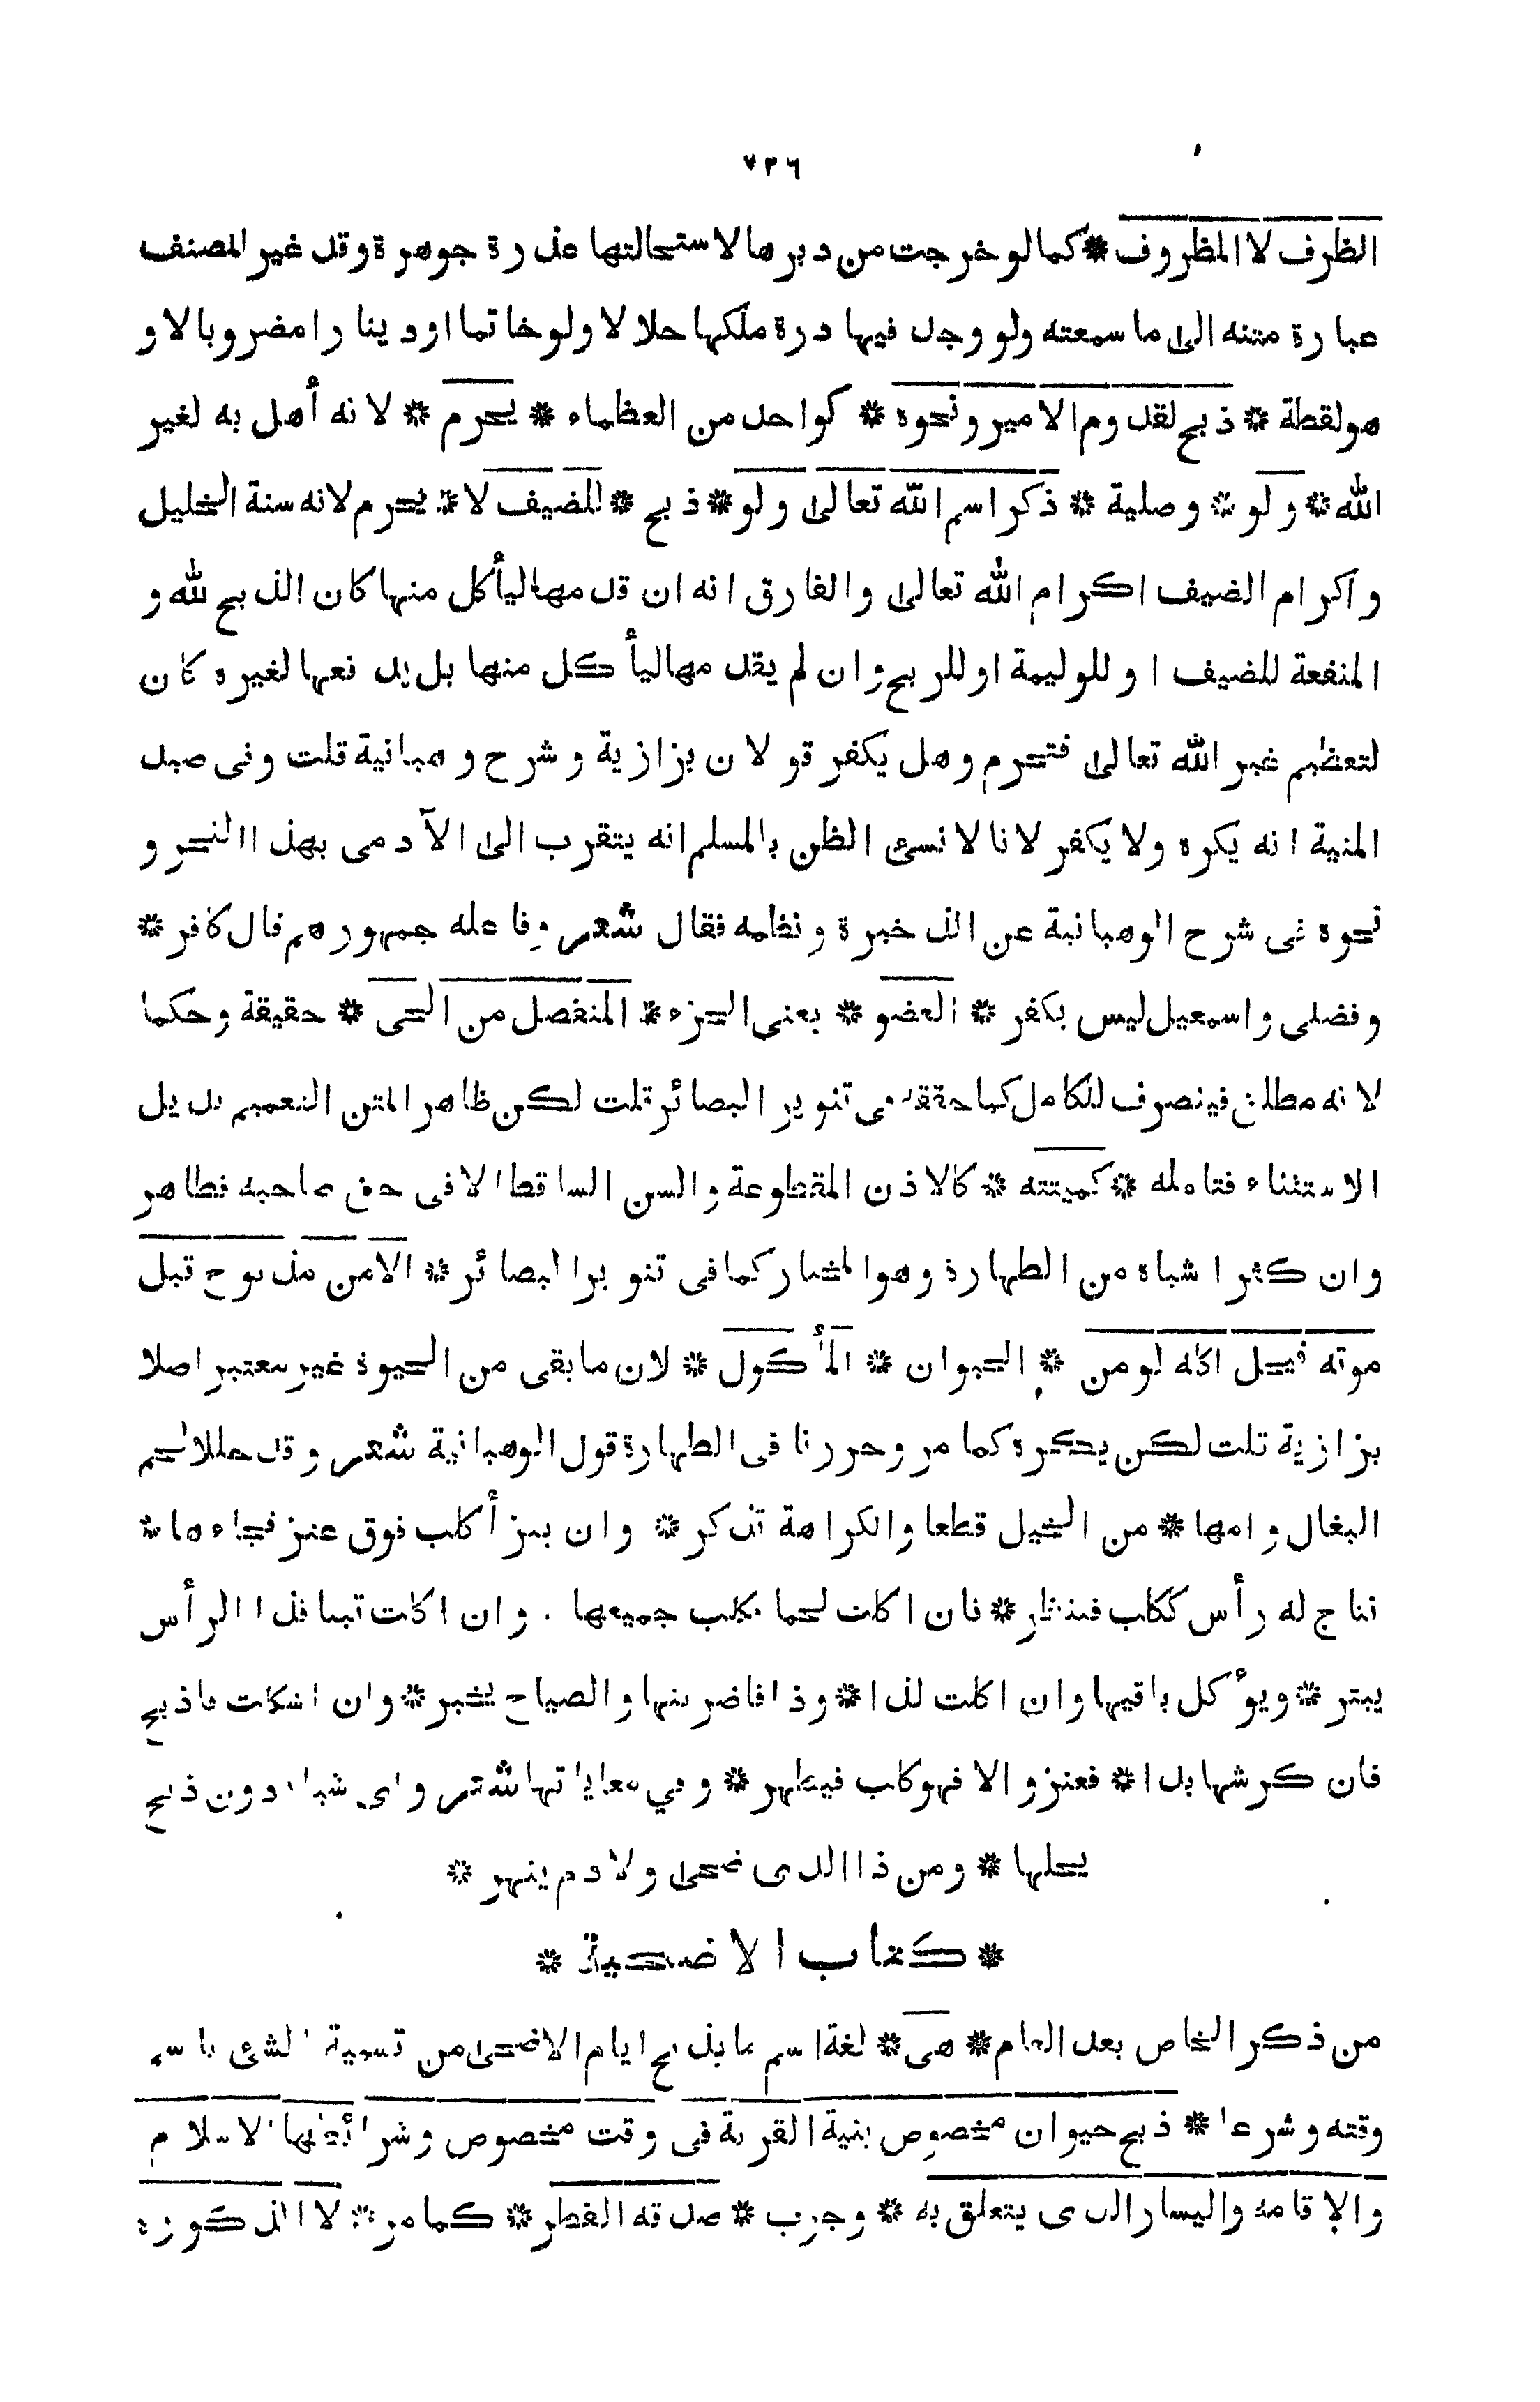 ٧٣٦
الظرف لا المظروف * كما لو خرجت من دبرها لاستحالتها عذرة جوهرة وقد غير المصنف
عبارة متنه الى ما سمعته ولو وجد فيها درة ملكها حلالا ولو خاتما او دينارا مضروبا لا و
هو لقطة * ذبح لقدوم الامير ونحوه * كواحد من العظماء * يحرم * لانه أهل به لغير
الله * ولو * وصلية * ذكر اسم الله تعالى ولو * ذبح * للضيف لا * يحرم لانه سنة الخليل
واكرام الضيف اكرام الله تعالى والفارق انه ان قدمها ليأكل منها كان الذبح لله و
المنفعة للضيف او للوليمة او للربح وان لم يقدمها ليأكل منها بل يدفعها لغيره كان
لتعظيم غير الله تعالى فتحرم وهل يكفر قولان بزازية وشرح وهبانية قلت وفى صيد
المنية انه يكره ولا يكفر لانا لا نسئ الظن بالمسلم انه يتقرب الى الآدمى بهذا النحر و
نحوه فى شرح الوهبانية عن الذخيرة ونظمه فقال شعر وفاعله جمهورهم قال كافر *
وفضلى واسمعيل ليس بكفر * العضو * يعنى الجزء * المنفصل من الحى * حقيقة وحكما
لانه مطلق فينصرف للكامل كما حققه فى تنوير البصائر قلت لكن ظاهر المتن التعميم بدليل
الاستثناء فتامله * كميتته * كالاذن المقطوعة والسن الساقط الا فى حق صاحبه فطاهر
وان كثر اشباه من الطهارة وهو المختار كما فى تنوير البصائر * الا من مذبوح قبل
موته فيحل اكله لو من * الحيوان * المأكول * لان ما بقى من الحيوة غير معتبر اصلا
بزازية قلت لكن يكره كما مر وحررنا فى الطهارة قول الوهبانية شعر وقد حللا لحم
البغال وامها * من الخيل قطعا والكراهة تذكر * وان ينز أكلب فوق عنز فجاءها *
نتاج له رأس ككلب فينظر * فان اكلت لحما فكلب جميعها . وان اكلت تبنا فذا الرأس
يبتر * ويؤكل باقيها وان اكلت لذا * وذا فاضربنها والصياح يخبر * وان اشكلت فاذبح
فان كرشها بدا * فعنز والا فهو كلب فيطهر * وفي معاياتها شعر واى شياه دون ذبح
يحلها * ومن ذا الذى ضحى ولا دم ينهر *
* كتاب الاضحية *
من ذكر الخاص بعد العام * هى * لغة اسم لما يذبح ايام الاضحى من تسمية الشئ باسم
وقته وشرعا * ذبح حيوان مخصوص بنية القربة فى وقت مخصوص وشرائطها الاسلام
والاقامة واليسار الذى يتعلق به * وجوب * صدقة الفطر * كما مر * لا الذكورة